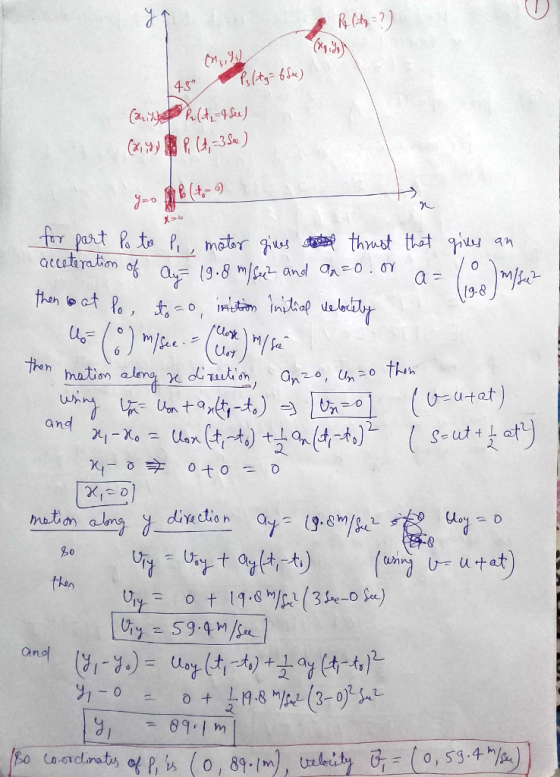 1
y
P4 (t4 = ?)
(x4, y4)
(x3, y3)
P3 (t3 = 6 Sec)
45°
(x2, y2) P2 (t2 = 4 Sec)
(x1, y1) P1 (t1 = 3 Sec)
y=0 P0 (t0 = 0)
x=0
x
for part P0 to P1, motor gives thrust that gives an
acceleration of ay = 19.8 m/sec² and ax = 0. or a = (0 19.8) m/sec²
then at P0, t0 = 0, initial velocity
u0 = (0 0) m/sec. = (u0x u0y) m/sec
then motion along x direction, ax = 0, ux = 0 then
using v1x = u0x + ax (t1 - t0) ⇒ vx = 0 (v = u + at)
and x1 - x0 = u0x (t1 - t0) + 1/2 ax (t1 - t0)² (S = ut + 1/2 at²)
x1 - 0 ⇒ 0 + 0 = 0
x1 = 0
motion along y direction ay = 19.8 m/sec² u0y = 0
so v1y = v0y + ay (t1 - t0) (using v = u + at)
then v1y = 0 + 19.8 m/sec² (3 sec - 0 sec)
v1y = 59.4 m/sec
and (y1 - y0) = u0y (t1 - t0) + 1/2 ay (t1 - t0)²
y1 - 0 = 0 + 1/2 19.8 m/sec² (3 - 0)² sec²
y1 = 89.1 m
so co-ordinates of P1 is (0, 89.1m), velocity v⃗1 = (0, 59.4 m/sec)